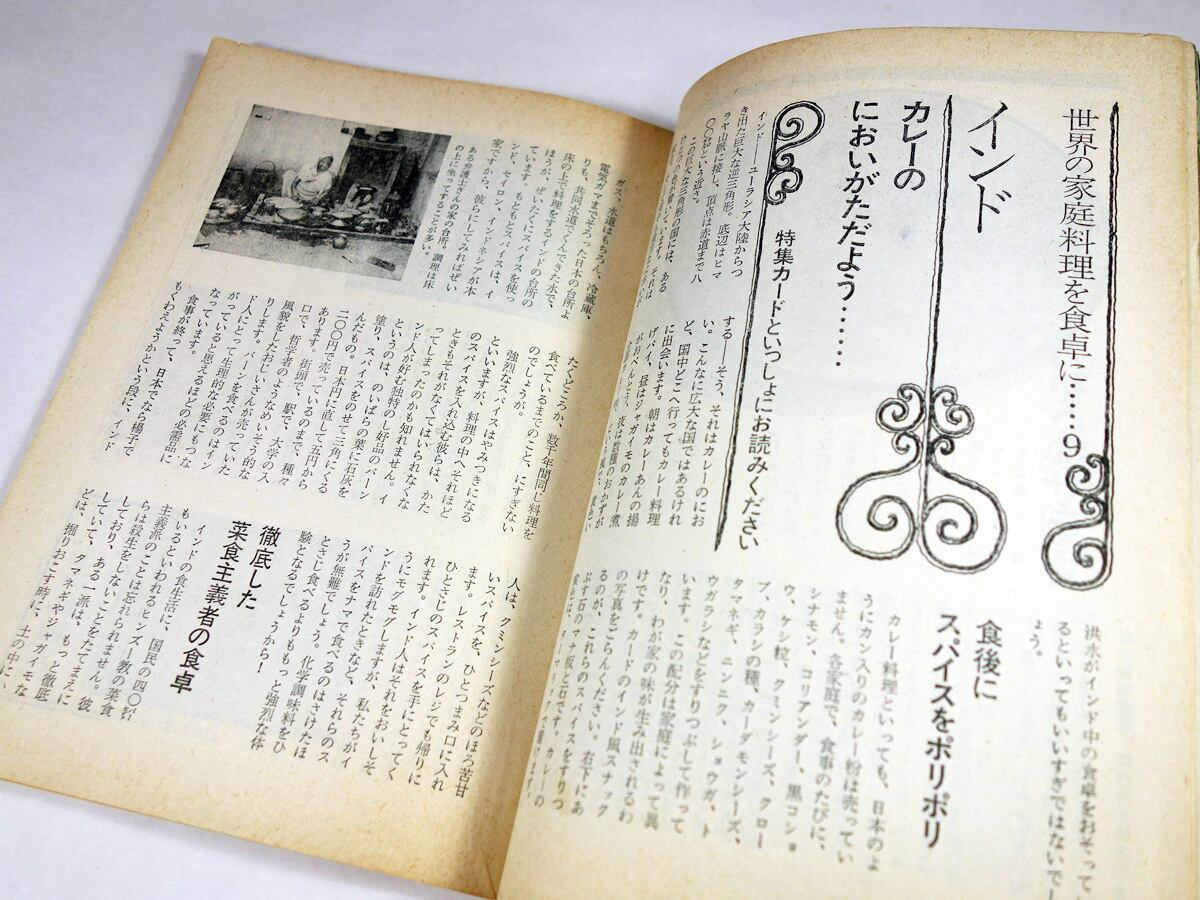 世界の家庭料理を食卓に……9
インド
カレーの
においがただよう……
特集カードといっしょにお読みください
インド――ユーラシア大陸からつ
き出た巨大な逆三角形。底辺はヒマ
ラヤ山脈に接し、頂点は赤道まで八
〇〇㌔という近さ。
この巨大な三角形の国には、ある
する――そう、それはカレーのにお
い。こんなに広大な国ではあるけれ
ど、国中どこへ行ってもカレー料理
に出会います。朝はカレーあんの揚
げパイ、昼はジャガイモのカレー煮
洪水がインド中の食卓をおそって
るといってもいいすぎではないでし
ょう。
食後に
スパイスをポリポリ
カレー料理といっても、日本のよ
うにカン入りのカレー粉は売ってい
ません。各家庭で、食事のたびに、
シナモン、コリアンダー、黒コショ
ウ、ケシ粒、クミンシーズ、クロー
ブ、カラシの種、カーダモンシーズ、
タマネギ、ニンニク、ショウガ、ト
ウガラシなどをすりつぶして作って
います。この配分は家庭によって異
なり、わが家の味が生み出されるわ
けです。カードのインド風スナック
の写真をごらんください。右下にあ
るのが、これらのスパイスをすりつ
ぶす石のマナ板と石です。カレーの
黄色は、ターマリックで着けます。
ガス、水道はもちろん、冷蔵庫、
電気ガマまでそろった日本の台所よ
りも、共同水道でくんできた水で、
床の上で料理をするインドの台所の
ほうが、ぜいたくにスパイスを使っ
ています。もともとスパイスは、イ
ンド、セイロン、インドネシアが本
家ですから、彼らにしてみればぜい
ある弁護士さんの家の台所。調理は床
の上に坐ってすることが多い。
たくどころか、数千年間同じ料理を
食べているまでのこと、にすぎない
のでしょうが。
強烈なスパイスはやみつきになる
といいますが、料理の中へそれほど
のスパイスを入れ込む彼らは、かた
ときもそれがなくてはいられなくな
ってしまったのかも知れません。イ
ンド人が好む独特のし好品のパーン
というのは、のいばらの葉に石灰を
塗り、スパイスをのせて三角にくる
んだもの。日本円に直して五円から
二〇〇円で売っているのまで、種々
あります。街頭で、駅で、大学の入
口で、哲学者のようなめいそう的な
風貌をしたおじいさんが売っていた
りします。パーンを食べるのはイン
ド人にとって生理的な必要にもつな
がっていると思えるほどの必需品に
なっています。
食事が終って、日本でなら楊子で
もくわえようかという段に、インド
人は、クミンシーズなどのほろ苦甘
いスパイスを、ひとつまみ口に入れ
ます。レストランのレジでも帰りに
ひとさじのスパイスを手にとってく
れます。インド人はそれをおいしそ
うにモグモグしますが、私たちがイ
ンドを訪れたときなど、それらのス
パイスをナマで食べるのはさけたほ
うが無難でしょう。化学調味料をひ
とさじ食べるよりももっと強烈な体
験となるでしょうから！
徹底した
菜食主義者の食卓
インドの食生活に、国民の四〇㌫
もいるといわれるヒンズー教の菜食
主義派のことは忘れられません。彼
らは殺生をしないことをたてまえに
しており、ある一派は、もっと徹底
していて、タマネギやジャガイモな
どは、掘りおこす時に、土の中に